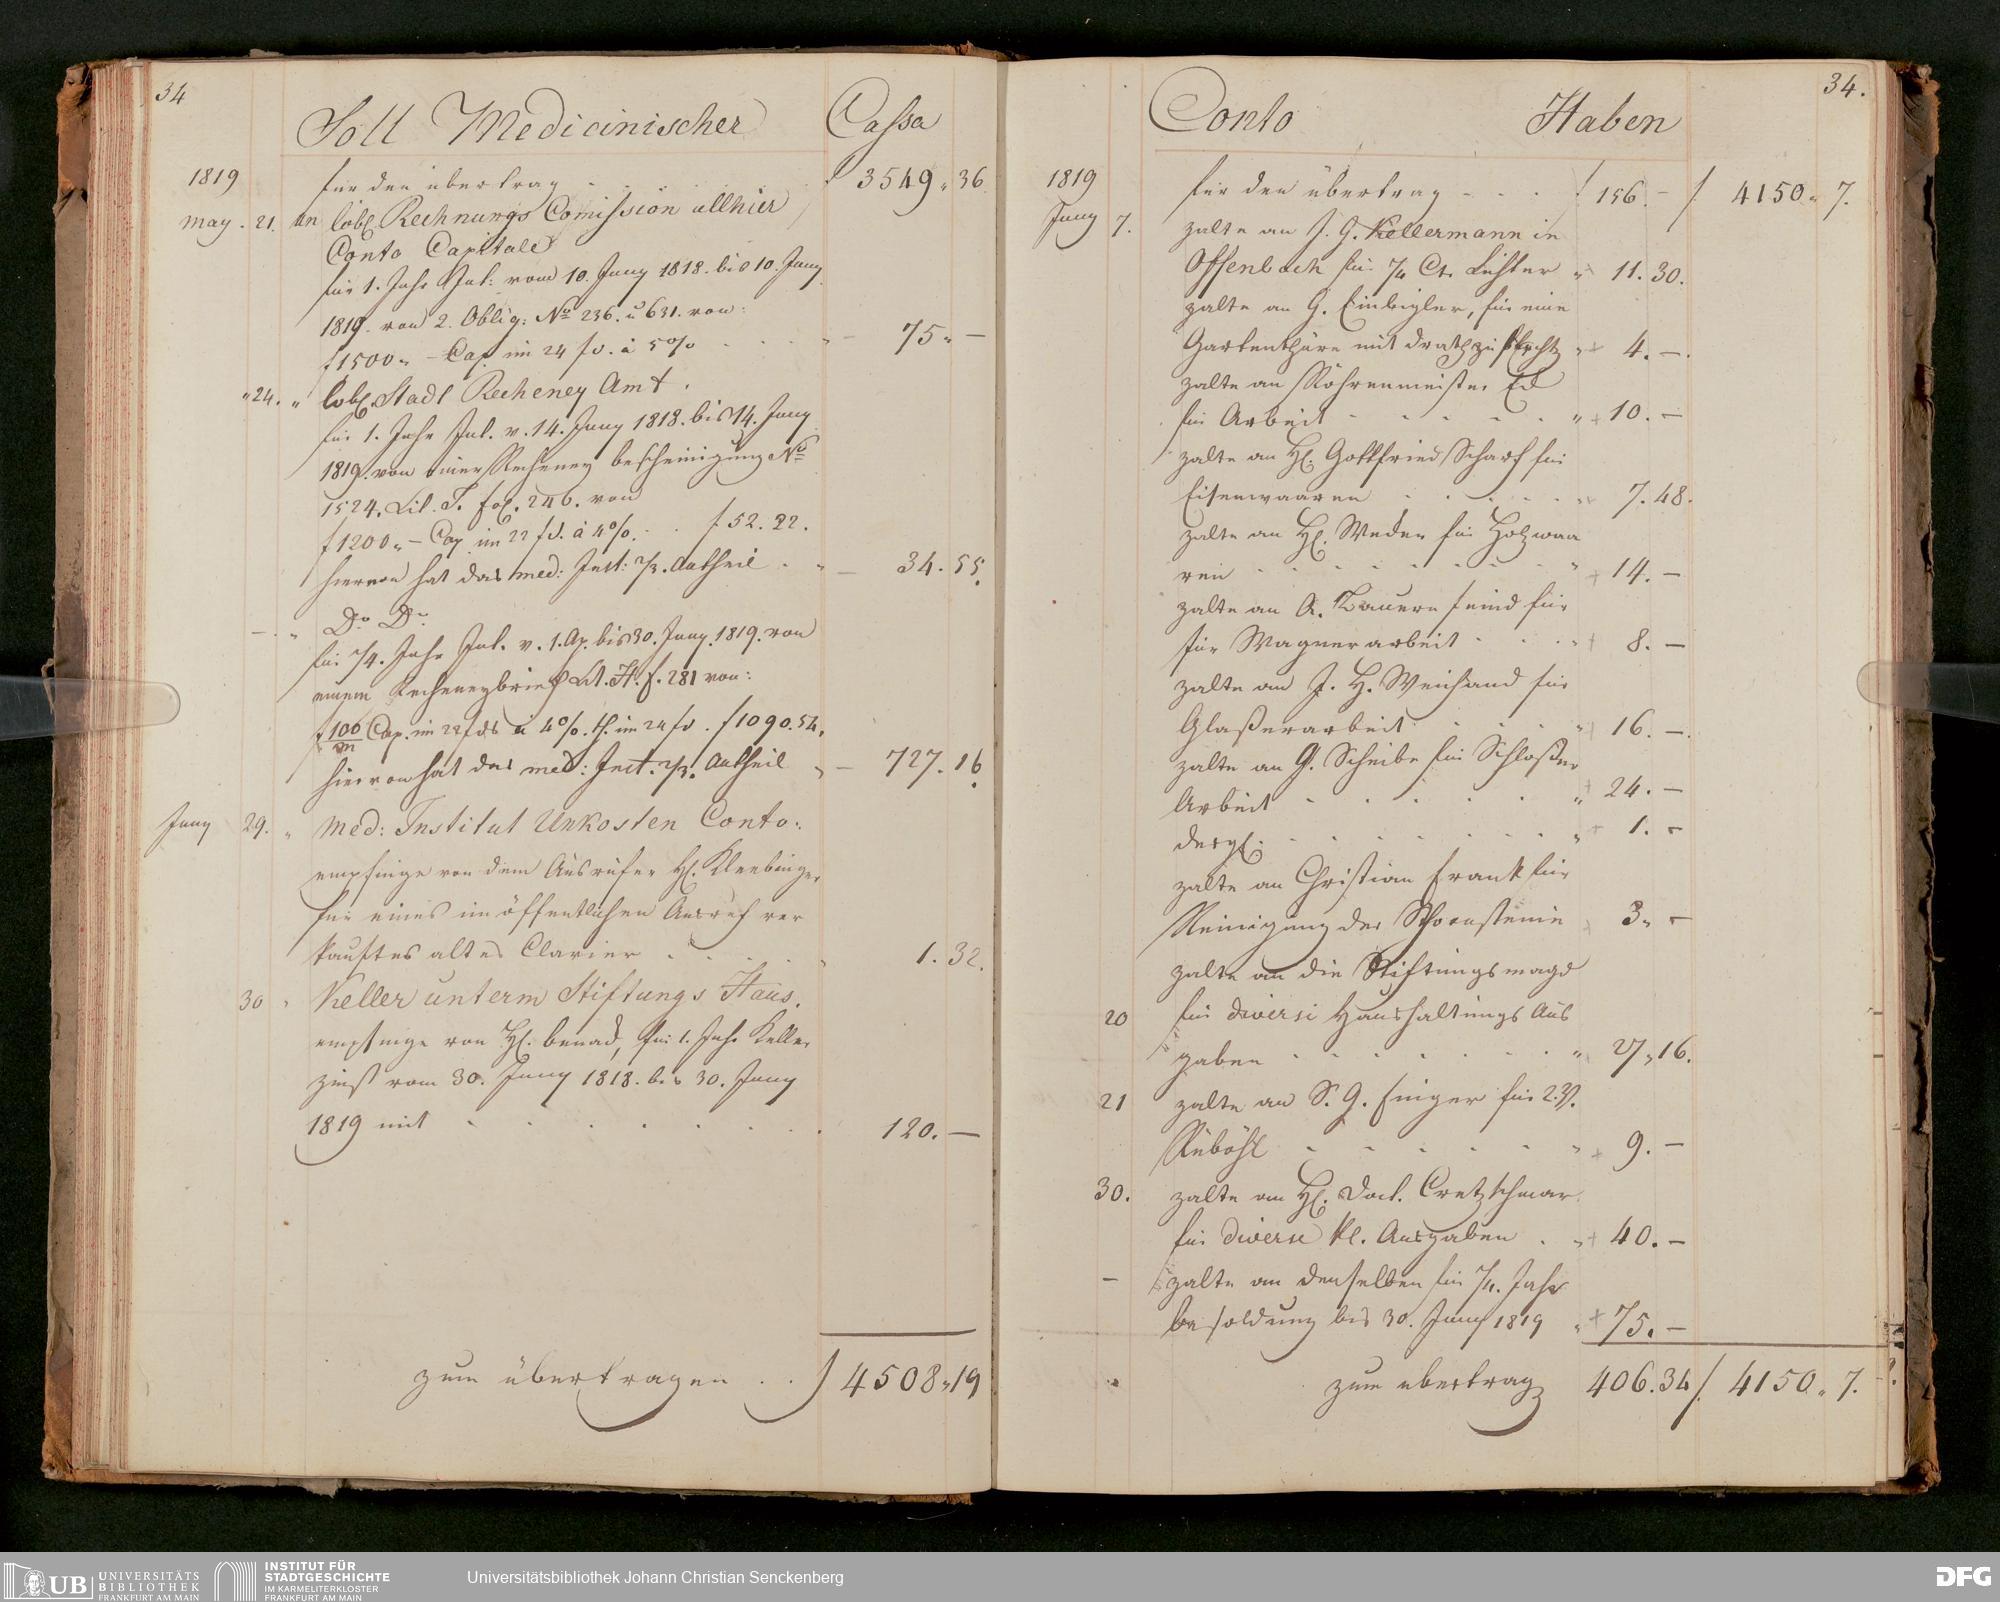 34
Soll Medicinischer Cassa
1819 für den übertrag f 3549 „ 36.
may . 21. an löbl. Rechnungs Comission allhier
Conto Capitale
für 1. Jahr Int: vom 10. Juny 1818. bis 10. Juny
1819. von 2. Oblig: No 236. u 631. von:
f 1500 „ – Cap im 24 fs. à 5% „ – 75 „ –
„ 24. „ löbl. Stadt Recheney Amt.
für 1. Jahr Int. v. 14. Juny 1818. bis 14. Juny
1819. von einer Recheney bescheinigung No
1524. Lit. T. fol. 246. von
f 1200 „ – Cap im 22 fs. à 4%. f 52. 22.
hiervon hat das med: Inst: 2/3. Antheil „ – 34. 55.
–. „ Do Do
für 1/4. Jahr Int. v. 1. Ap. bis 30. Juny. 1819. von
einem Recheneybrief Lit. H. f. 281 von:
f 100/m Cap. im 22 fds à 4%. im 24 fs. f 1090. 54.
hiervon hat das med: Inst. 2/3. Antheil „ – 727. 16.
Juny 29. „ Med: Institut Unkosten Conto.
empfinge von dem Ausrufer H. Kleebinger
für eines im öffentlichen Ausruf ver
kauftes altes Clavier „ 1. 32.
30 „ Keller unterm Stiftungs Haus.
empfinge von H. benad, für 1. Jahr Keller
zinß vom 30. Juny 1818. bis 30. Juny
1819 mit 120. –
zum übertragen . . f 4508 „ 19
34.
Conto Haben
1819 für den übertrag f 156. – f. 4150 „ 7.
Juny 7. zalte an J. G. Kellermann in
Offenbach für 1/4 Ct. Lichter „ 11. 30.
zalte an G. Einbigler, für eine
Gartenthüre mit drath zu „ 4. –.
zalte an Röhrenmeister Ed
für Arbeit „ 10. –
zalte an H. Gottfried Scharf für
Eisenwaaren „ 7. 48.
zalte an H. Weder für Holzwaa
ren „ 14. –
zalte an A. Bauernfeind für
für Wagnerarbeit „ 8. –
zalte an J. H. Weihand für
Glaßerarbeit „ 16. –.
zalte an G. Scheibe für Schloßer
Arbeit „ 24. –
dergl. „ 1. –
zalte an Christian Frank für
Reinigung der Schornsteine 3 „ –
zalte an die Stiftungsmagd
20 für diverse Haushaltungs Aus
gaben „ 27 „ 16.
21 zalte an S. G. Finger für 2. V.
Rüböhl „ 9. –
30. zalte an H. Doct. Cretzschmar
für diverse kl. Ausgaben „ 40. –
– zalte an denselben für 1/4. Jahr
besoldung bis 30. Juny 1819 „ 75. –
zum übertrag 406. 34 f. 4150 „ 7.
UB UNIVERSITÄTS
BIBLIOTHEK
FRANKFURT AM MAIN
INSTITUT FÜR
STADTGESCHICHTE
IM KARMELITERKLOSTER
FRANKFURT AM MAIN
Universitätsbibliothek Johann Christian Senckenberg
DFG